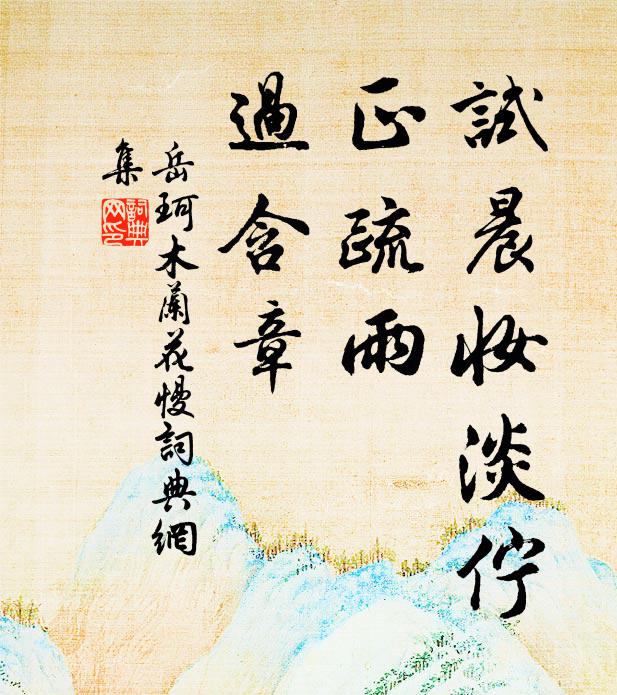 試晨妝淡佇
正疏雨
過含章
岳珂木蘭花慢詞典網
集
詞典
网印